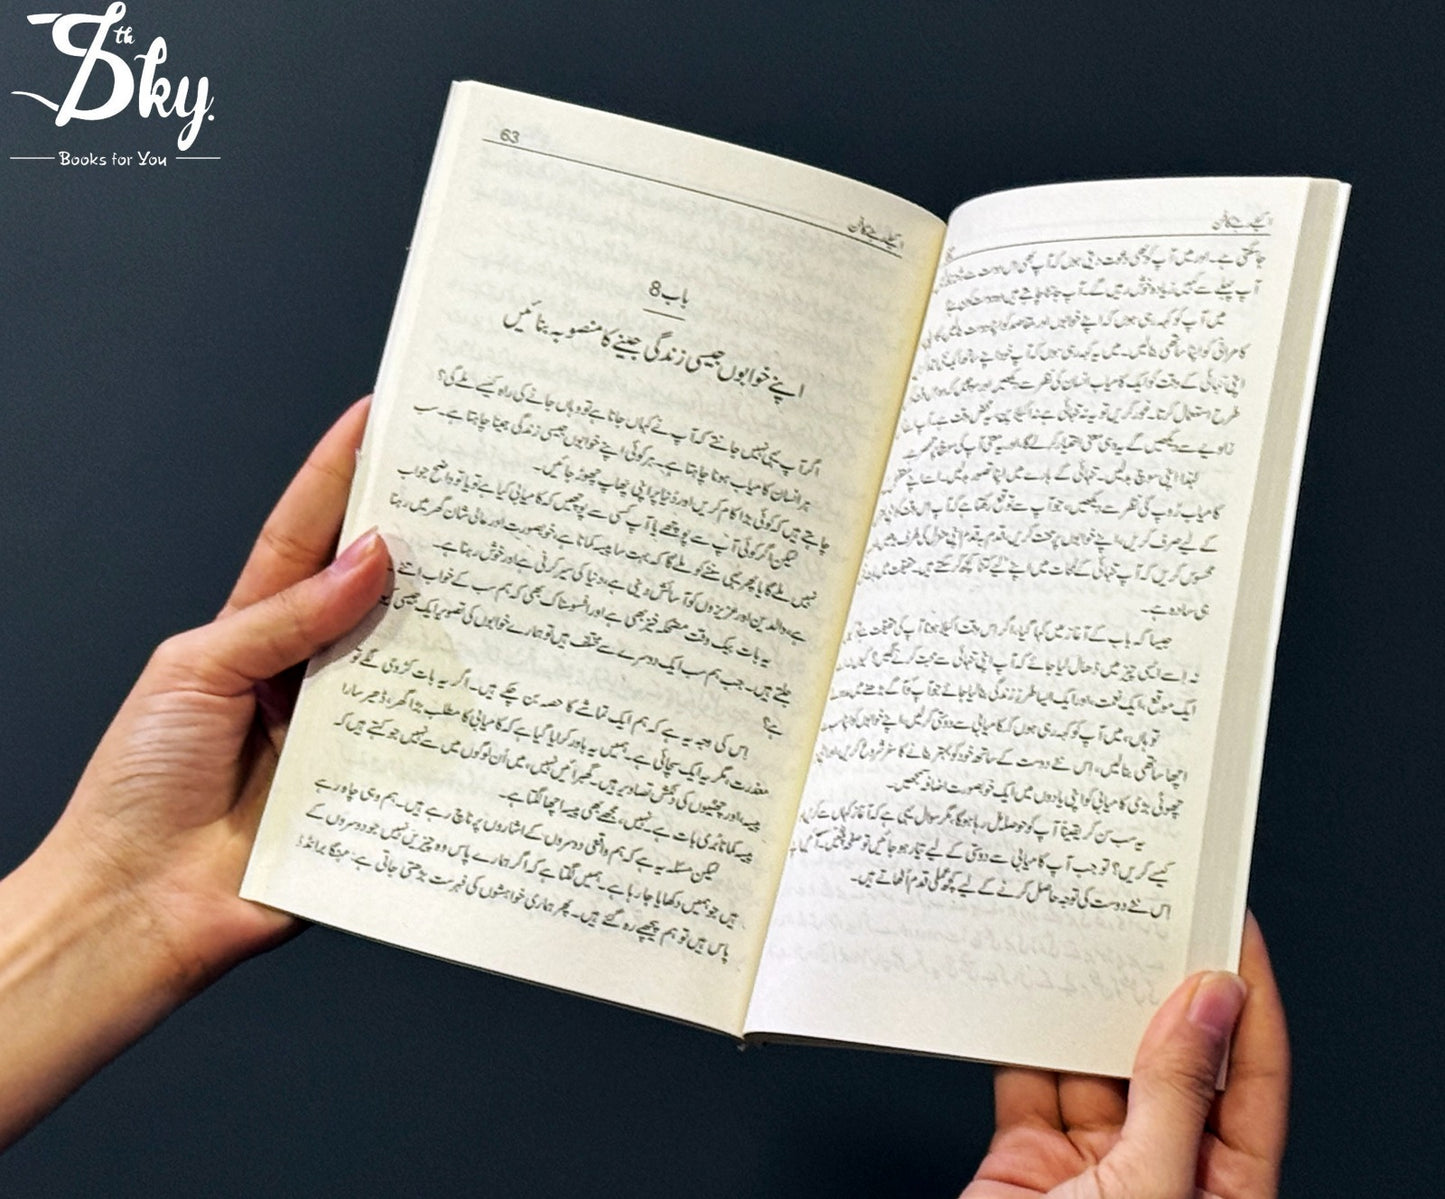 8th Sky.
Books for You
اکیلے رہنے کا فن
جا سکتی ہے۔ اور میں آپ کو بھی دعوت دیتی ہوں کہ آپ بھی اس دوست سے
آپ پہلے سے کہیں زیادہ خوش رہیں گے۔ آپ جتنا چاہتے ہیں
میں آپ کو کہہ رہی ہوں کہ اپنے خوابوں اور مقاصد کو اپنا دوست بنا لیں
کامرانی کو اپنا ساتھی بنا لیں۔ میں یہ کہہ رہی ہوں کہ آپ خود اپنے ساتھ
اپنی تنہائی کے وقت کو ایک کامیاب انسان کی نظر سے دیکھیں اور
طرح استعمال کرتا۔ غور کریں تو یہ نہ تنہائی ہے نہ اکیلا پن، یہ محض وقت ہے۔ آپ
زاویے سے دیکھیں گے یہ وہی معنی اختیار کر لے گا اور یہ معنی آپ کی سوچ
لہٰذا اپنی سوچ بدلیں۔ تنہائی کے بارے میں اپنا تصور بدلیں، اسے اپنے
کامیاب رُوپ کی نظر سے دیکھیں، جو آپ سے توقع رکھتا ہے کہ آپ اس وقت
کے لیے صرف کریں، اپنے خوابوں پر محنت کریں، قدم بہ قدم اپنی منزل کی طرف
محسوس کریں کہ آپ تنہائی کے لمحات میں اپنے لیے کتنا کچھ کر سکتے ہیں۔ حقیقت میں
ہی سادہ ہے۔
جیسا کہ باب کے آغاز میں کہا گیا، اگر اس وقت اکیلا ہونا آپ کی حقیقت ہے
نہ اِسے ایسی چیز میں ڈھال لیا جائے کہ آپ اپنی تنہائی سے محبت کرنے لگیں
ایک موقع، ایک نعمت، اور ایک ایسا طرزِ زندگی بنا لیا جائے جو آپ کو آگے بڑھنے میں
تو ہاں، میں آپ کو کہہ رہی ہوں کہ کامیابی سے دوستی کر لیں، اپنے خوابوں کو اپنا سب
اچھا ساتھی بنا لیں، اس نئے دوست کے ساتھ خود کو بہتر بنانے کا سفر شروع کریں اور
چھوٹی بڑی کامیابی کو اپنی یادوں میں ایک خوبصورت اضافہ سمجھیں۔
یہ سب سن کر یقیناً آپ کو حوصلہ مل رہا ہوگا، مگر سوال یہی ہے کہ آغاز کہاں سے کریں
کیسے کریں؟ تو جب آپ کامیابی سے دوستی کے لیے تیار ہو جائیں تو صفحہ پلٹیں
اِس نئے دوست کی توجہ حاصل کرنے کے لیے کچھ عملی قدم اُٹھاتے ہیں۔
63
اکیلے رہنے کا فن
باب 8
اپنے خوابوں جیسی زندگی جینے کا منصوبہ بنائیں
اگر آپ یہی نہیں جانتے کہ آپ نے کہاں جانا ہے تو وہاں جانے کی راہ کیسے ملے گی؟
ہر انسان کامیاب ہونا چاہتا ہے۔ ہر کوئی اپنے خوابوں جیسی زندگی جینا چاہتا ہے۔ سب
چاہتے ہیں کہ کوئی بڑا کام کریں اور دُنیا پر اپنی چھاپ چھوڑ جائیں۔
لیکن اگر کوئی آپ سے پوچھے یا آپ کسی سے پوچھیں کہ کامیابی کیا ہے تو یا تو واضح جواب
نہیں ملے گا یا پھر یہی سننے کو ملے گا کہ بہت سا پیسہ کمانا ہے، خوبصورت اور عالی شان گھر میں رہنا
ہے، والدین اور عزیزوں کو آسائش دینی ہے، دنیا کی سیر کرنی ہے اور خوش رہنا ہے۔
یہ بات بیک وقت مضحکہ خیز بھی ہے اور افسوسناک بھی کہ ہم سب کے خواب اتنے
ملتے ہیں۔ جب ہم سب ایک دوسرے سے مختلف ہیں تو ہمارے خوابوں کی تصویر ایک جیسی کیوں
ہے؟
اِس کی وجہ یہ ہے کہ ہم ایک تماشے کا حصہ بن چکے ہیں۔ اگر یہ بات کڑوی لگے تو
معذرت، مگر یہ ایک سچائی ہے۔ ہمیں یہ باور کرایا گیا ہے کہ کامیابی کا مطلب بڑا گھر، ڈھیر سارا
پیسہ، اور چھٹیوں کی دلکش تصاویر ہیں۔ گھبرائیں نہیں، میں اُن لوگوں میں سے نہیں جو کہتے ہیں کہ
پیسہ کمانا بُری بات ہے۔ نہیں، مجھے بھی پیسہ اچھا لگتا ہے۔
لیکن مسئلہ یہ ہے کہ ہم واقعی دوسروں کے اشاروں پر ناچ رہے ہیں۔ ہم وہی چاہ رہے
ہیں جو ہمیں دکھایا جا رہا ہے۔ ہمیں لگتا ہے کہ اگر ہمارے پاس وہ چیزیں نہیں جو دوسروں کے
پاس ہیں تو ہم پیچھے رہ گئے ہیں۔ پھر ہماری خواہشوں کی فہرست بڑھتی جاتی ہے: مہنگا برانڈڈ